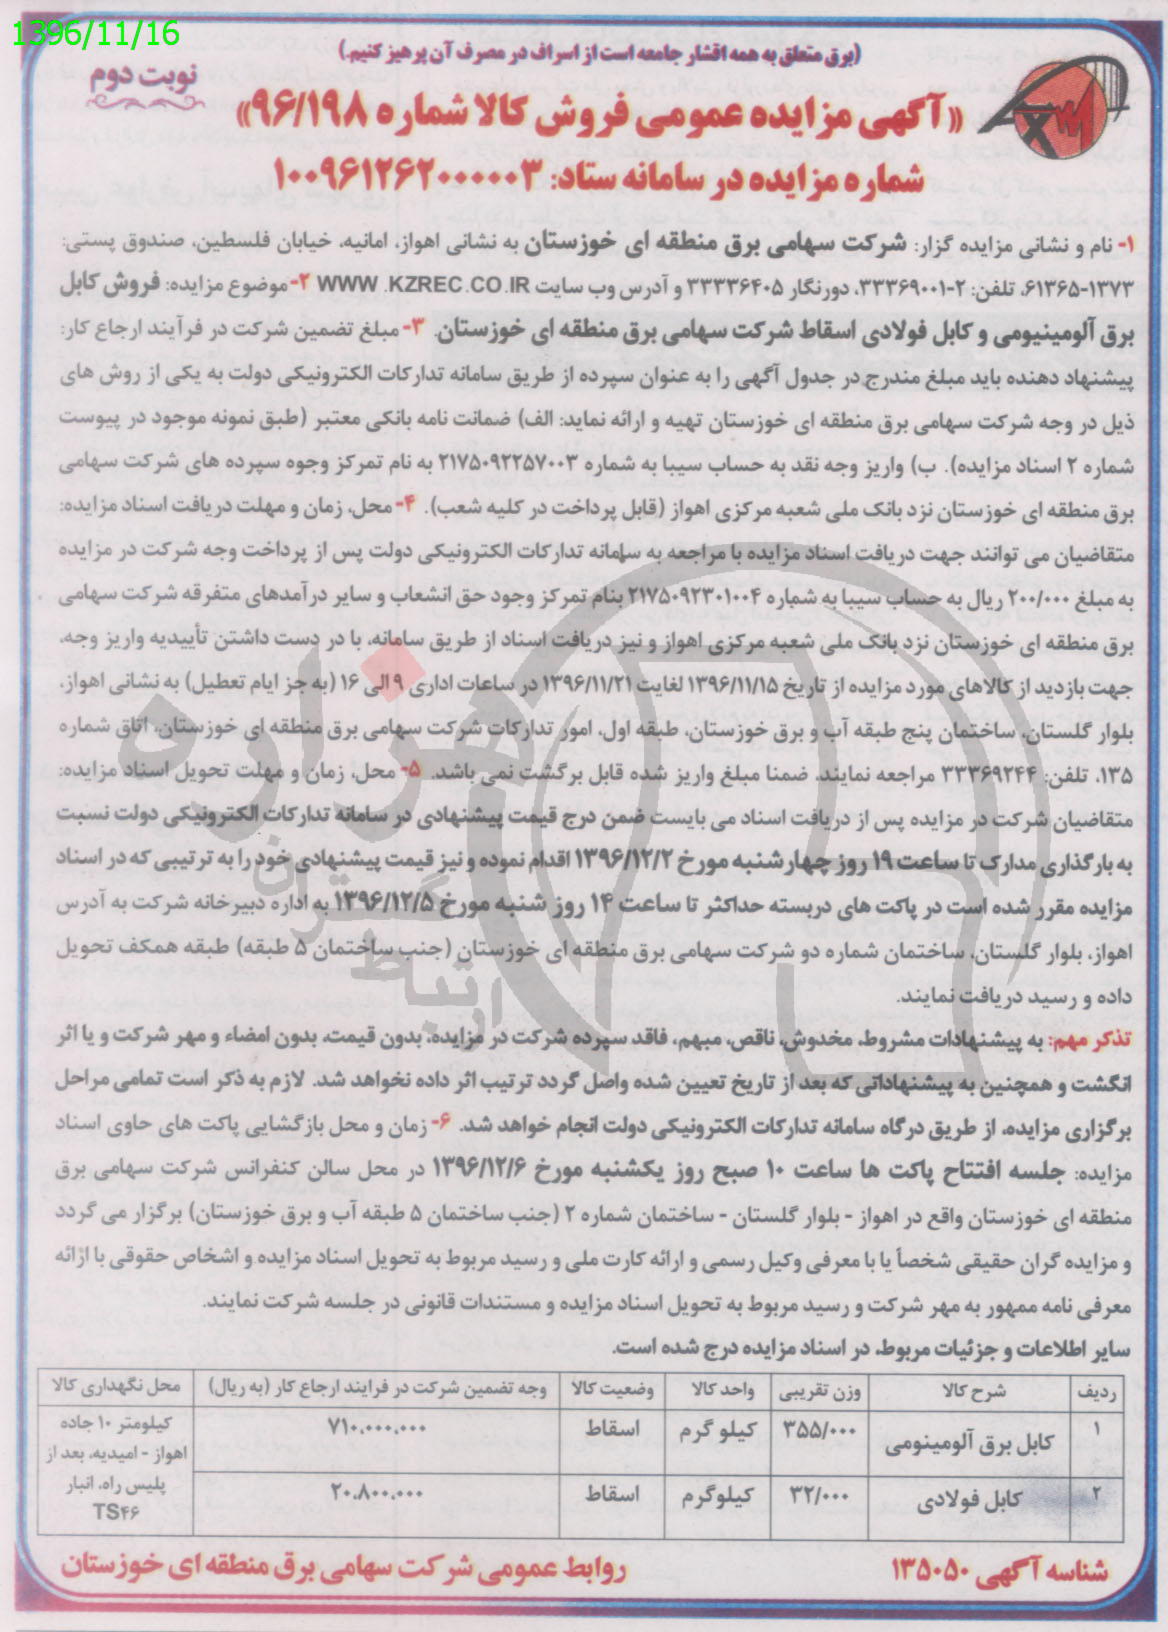 1396/11/16
(برق متعلق به همه اقشار جامعه است از اسراف در مصرف آن پرهیز کنیم.)
نوبت دوم
«آگهی مزایده عمومی فروش کالا شماره ۹۶/۱۹۸»
شماره مزایده در سامانه ستاد: ۱۰۰۹۶۱۲۶۲۰۰۰۰۰۳
۱- نام و نشانی مزایده گزار: شرکت سهامی برق منطقه ای خوزستان به نشانی اهواز، امانیه، خیابان فلسطین، صندوق پستی:
۶۱۳۶۵-۱۳۷۳، تلفن: ۲-۳۳۳۶۹۰۰۱، دورنگار ۳۳۳۳۶۴۰۵ و آدرس وب سایت WWW .KZREC.CO.IR ۲-موضوع مزایده: فروش کابل
برق آلومینیومی و کابل فولادی اسقاط شرکت سهامی برق منطقه ای خوزستان. ۳- مبلغ تضمین شرکت در فرآیند ارجاع کار:
پیشنهاد دهنده باید مبلغ مندرج در جدول آگهی را به عنوان سپرده از طریق سامانه تدارکات الکترونیکی دولت به یکی از روش های
ذیل در وجه شرکت سهامی برق منطقه ای خوزستان تهیه و ارائه نماید: الف) ضمانت نامه بانکی معتبر (طبق نمونه موجود در پیوست
شماره ۲ اسناد مزایده). ب) واریز وجه نقد به حساب سیبا به شماره ۲۱۷۵۰۹۲۲۵۷۰۰۳ به نام تمرکز وجوه سپرده های شرکت سهامی
برق منطقه ای خوزستان نزد بانک ملی شعبه مرکزی اهواز (قابل پرداخت در کلیه شعب). ۴- محل، زمان و مهلت دریافت اسناد مزایده:
متقاضیان می توانند جهت دریافت اسناد مزایده با مراجعه به سامانه تدارکات الکترونیکی دولت پس از پرداخت وجه شرکت در مزایده
به مبلغ ۲۰۰/۰۰۰ ریال به حساب سیبا به شماره ۲۱۷۵۰۹۲۳۰۱۰۰۴ بنام تمرکز وجود حق انشعاب و سایر درآمدهای متفرقه شرکت سهامی
برق منطقه ای خوزستان نزد بانک ملی شعبه مرکزی اهواز و نیز دریافت اسناد از طریق سامانه، با در دست داشتن تأییدیه واریز وجه،
جهت بازدید از کالاهای مورد مزایده از تاریخ ۱۳۹۶/۱۱/۱۵ لغایت ۱۳۹۶/۱۱/۲۱ در ساعات اداری ۹ الی ۱۶ (به جز ایام تعطیل) به نشانی اهواز،
بلوار گلستان، ساختمان پنج طبقه آب و برق خوزستان، طبقه اول، امور تدارکات شرکت سهامی برق منطقه ای خوزستان، اتاق شماره
۱۳۵، تلفن: ۳۳۳۶۹۲۴۴ مراجعه نمایند. ضمنا مبلغ واریز شده قابل برگشت نمی باشد. ۵- محل، زمان و مهلت تحویل اسناد مزایده:
متقاضیان شرکت در مزایده پس از دریافت اسناد می بایست ضمن درج قیمت پیشنهادی در سامانه تدارکات الکترونیکی دولت نسبت
به بارگذاری مدارک تا ساعت ۱۹ روز چهارشنبه مورخ ۱۳۹۶/۱۲/۲ اقدام نموده و نیز قیمت پیشنهادی خود را به ترتیبی که در اسناد
مزایده مقرر شده است در پاکت های دربسته حداکثر تا ساعت ۱۴ روز شنبه مورخ ۱۳۹۶/۱۲/۵ به اداره دبیرخانه شرکت به آدرس
اهواز، بلوار گلستان، ساختمان شماره دو شرکت سهامی برق منطقه ای خوزستان (جنب ساختمان ۵ طبقه) طبقه همکف تحویل
داده و رسید دریافت نمایند.
تذکر مهم: به پیشنهادات مشروط، مخدوش، ناقص، مبهم، فاقد سپرده شرکت در مزایده، بدون قیمت، بدون امضاء و مهر شرکت و یا اثر
انگشت و همچنین به پیشنهاداتی که بعد از تاریخ تعیین شده واصل گردد ترتیب اثر داده نخواهد شد. لازم به ذکر است تمامی مراحل
برگزاری مزایده، از طریق درگاه سامانه تدارکات الکترونیکی دولت انجام خواهد شد. ۶- زمان و محل بازگشایی پاکت های حاوی اسناد
مزایده: جلسه افتتاح پاکت ها ساعت ۱۰ صبح روز یکشنبه مورخ ۱۳۹۶/۱۲/۶ در محل سالن کنفرانس شرکت سهامی برق
منطقه ای خوزستان واقع در اهواز - بلوار گلستان - ساختمان شماره ۲ (جنب ساختمان ۵ طبقه آب و برق خوزستان) برگزار می گردد
و مزایده گران حقیقی شخصاً یا با معرفی وکیل رسمی و ارائه کارت ملی و رسید مربوط به تحویل اسناد مزایده و اشخاص حقوقی با ارائه
معرفی نامه ممهور به مهر شرکت و رسید مربوط به تحویل اسناد مزایده و مستندات قانونی در جلسه شرکت نمایند.
سایر اطلاعات و جزئیات مربوط، در اسناد مزایده درج شده است.
ردیف شرح کالا وزن تقریبی واحد کالا وضعیت کالا وجه تضمین شرکت در فرایند ارجاع کار (به ریال) محل نگهداری کالا
۱ کابل برق آلومینومی ۳۵۵/۰۰۰ کیلو گرم اسقاط ۷۱۰،۰۰۰،۰۰۰ کیلومتر ۱۰ جاده
اهواز - امیدیه، بعد از
پلیس راه، انبار
TS۴۶
۲ کابل فولادی ۳۲/۰۰۰ کیلوگرم اسقاط ۲۰،۸۰۰،۰۰۰
شناسه آگهی ۱۳۵۰۵۰
روابط عمومی شرکت سهامی برق منطقه ای خوزستان
هزاره
گستران
ارتباط